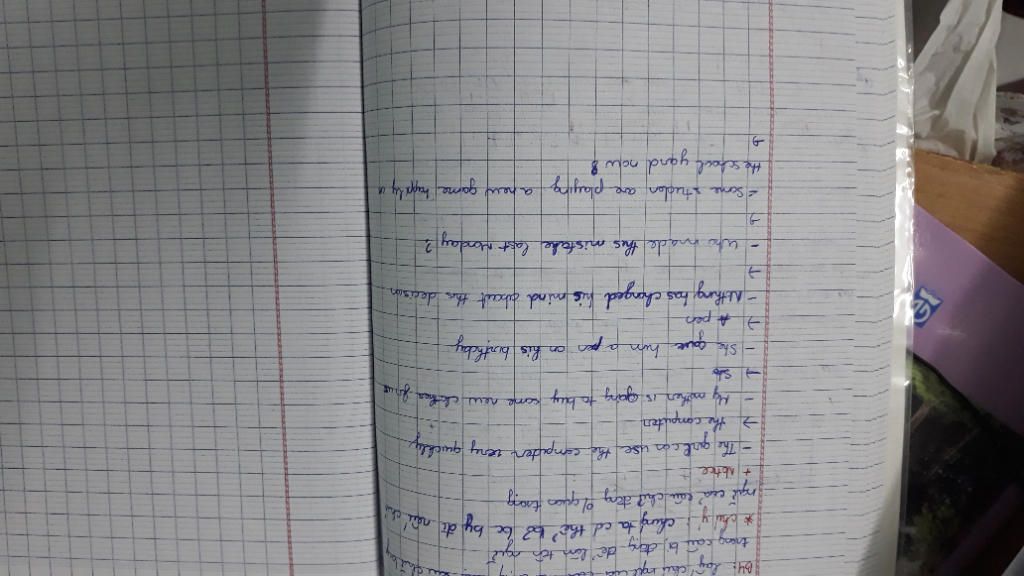 B4: lấy chủ ngữ của câu
trong câu bị động để làm tân ngữ
* chú ý: chúng ta có thể bỏ be by đt nếu chủ
ngữ của câu chủ động o/ quan trọng
+ Notice
- The girl can use the computer very quickly
→ the computer
- My mother is going to buy some new clothes
→ So
- She gave him a pen on his birthday
→ A pen
- Nothing has changed his mind about this decison
→
- Who made this mistake last Monday?
→
- Some studen are playing a new game happly
the school yard now
→